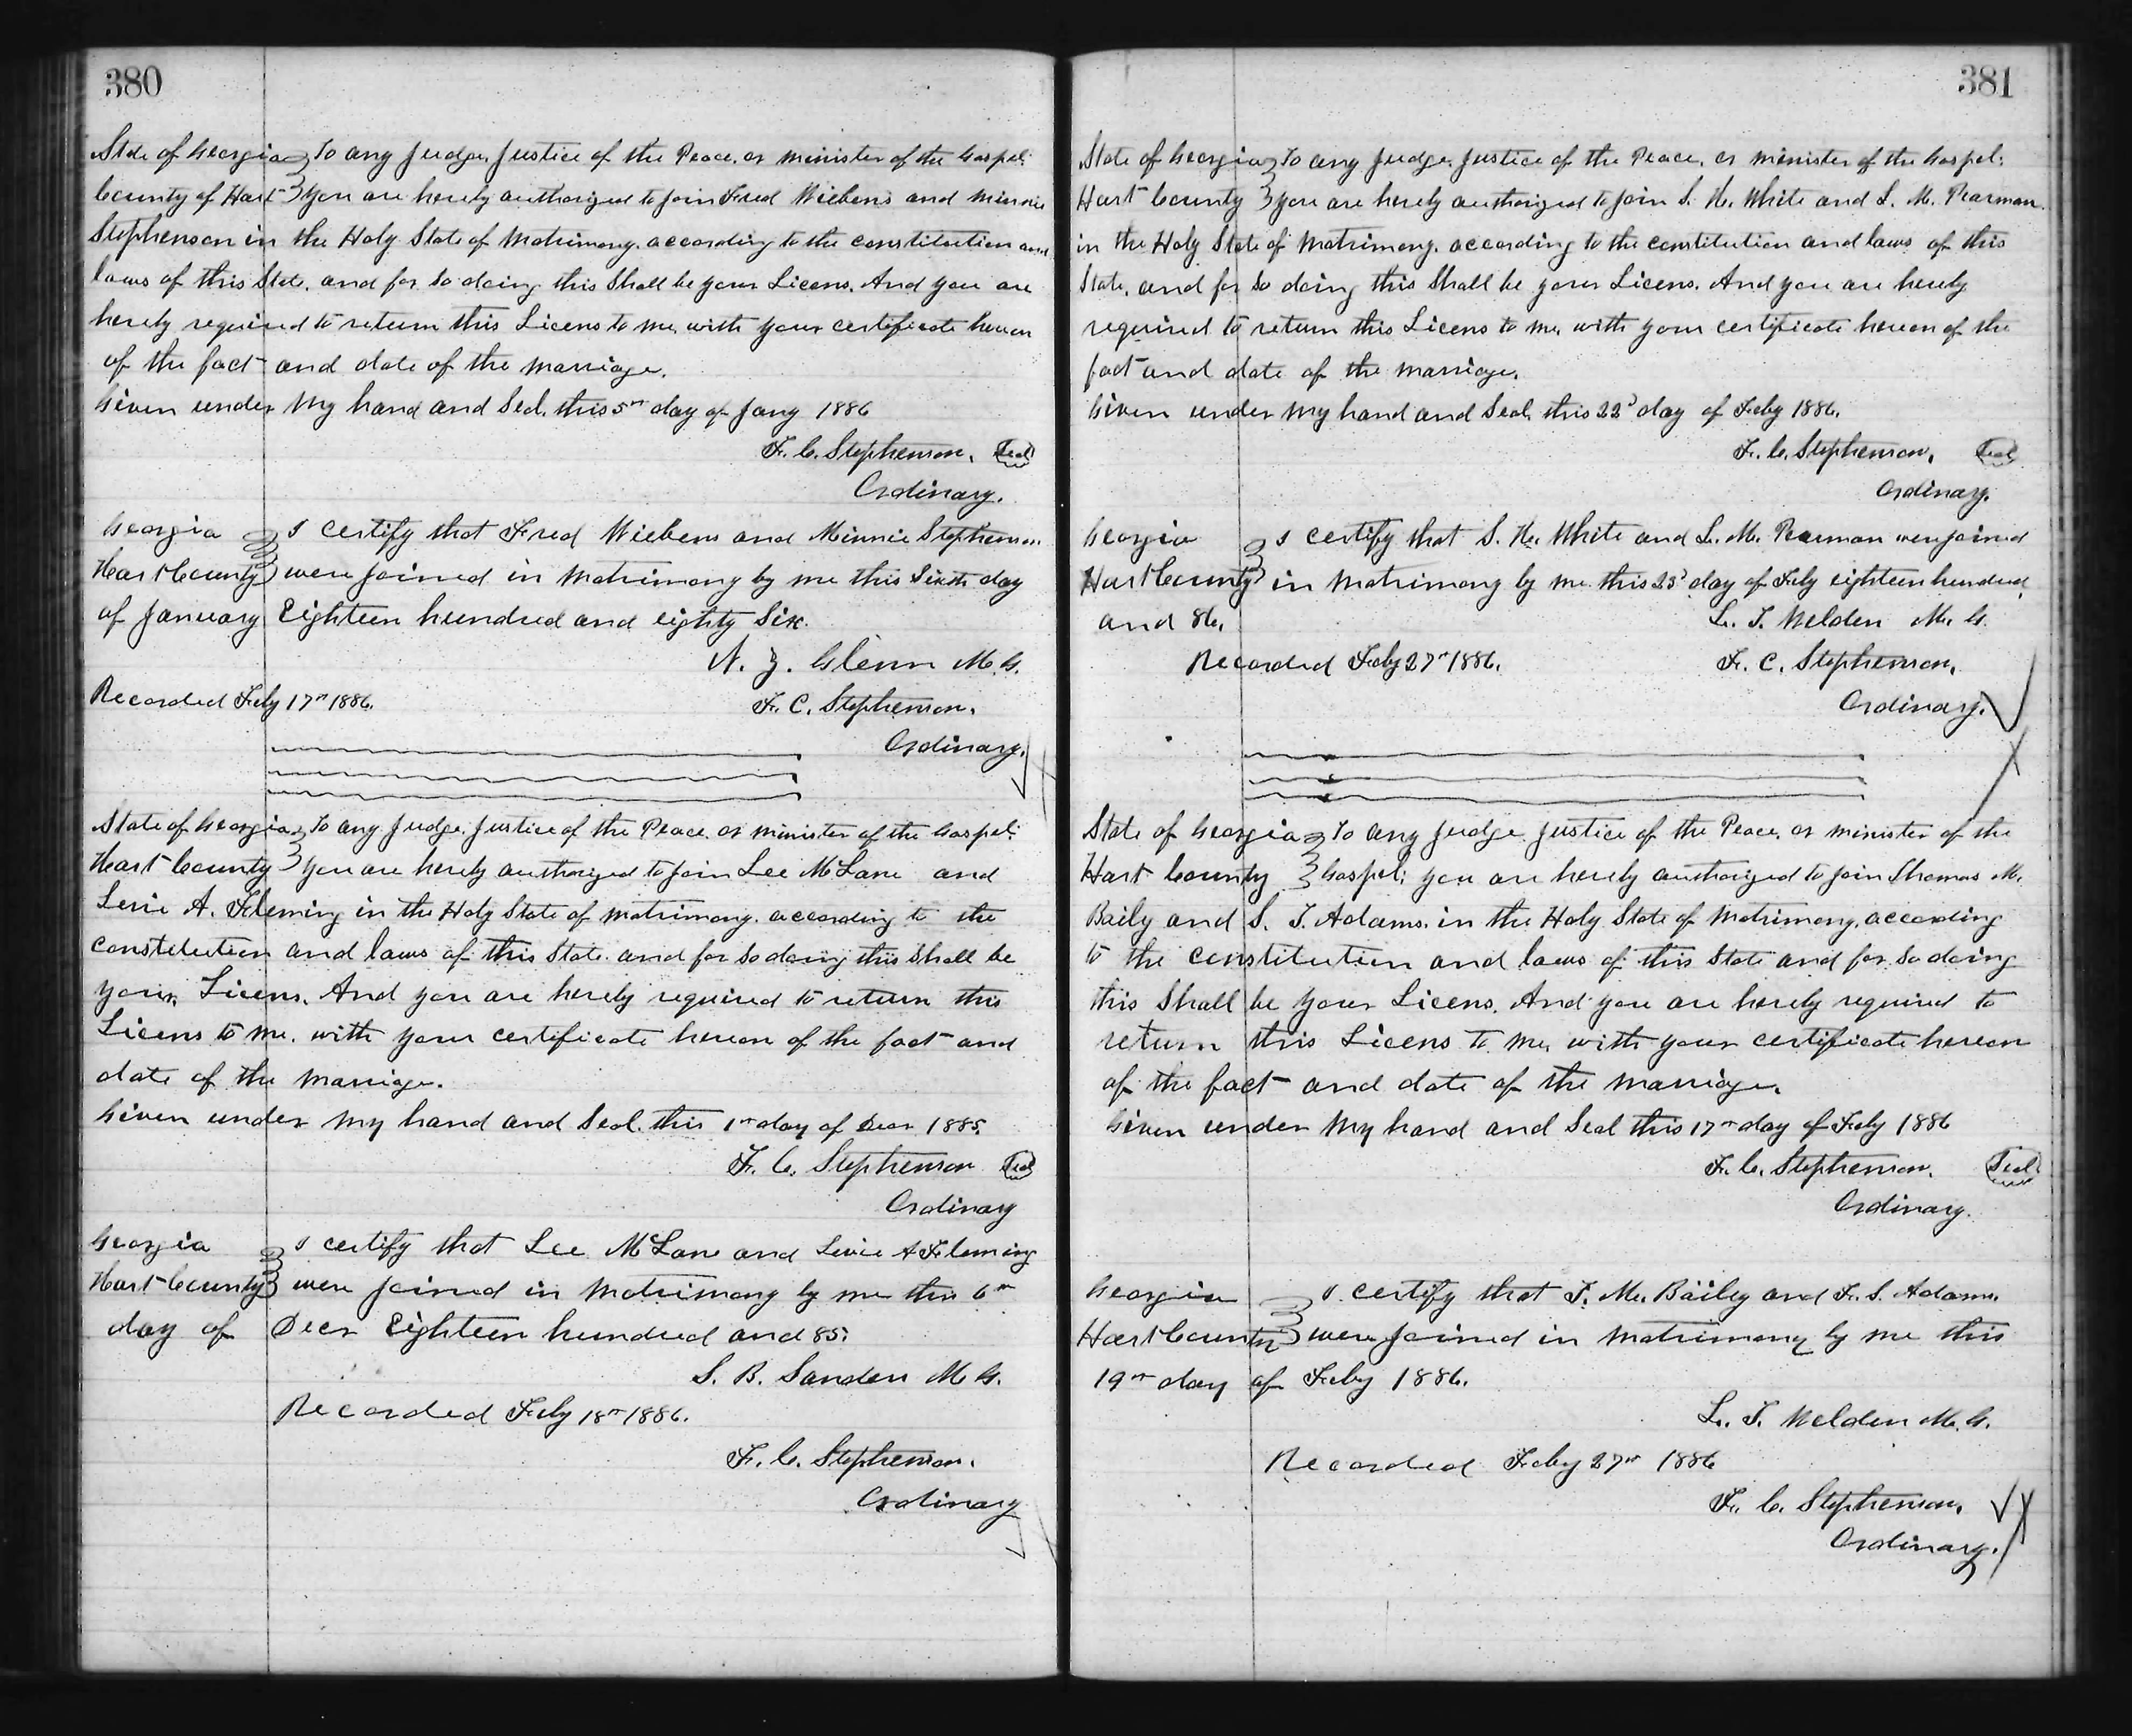 380
State of Georgia } To any Judge, Justice of the Peace, or minister of the Gospel:
County of Hart } you are hereby authorized to join Fred Wiebens and Minnie
Stephenson in the Holy State of Matrimony, according to the constitution and
laws of this State, and for so doing this shall be your Licens. And you are
hereby required to return this Licens to me, with your certificate hereon
of the fact and date of the marriage.
Given under my hand and Seal, this 5th day of Jany 1886
F. C. Stephenson, Seal
Ordinary.
Georgia } I certify that Fred Wiebens and Minnie Stephenson
Hart County } were joined in Matrimony by me this Sixth day
of January Eighteen hundred and eighty Six.
N. Z. Glenn M.G.
Recorded Feby 17th 1886. F. C. Stephenson,
Ordinary.
State of Georgia } To any Judge, Justice of the Peace, or minister of the Gospel:
Hart County } you are hereby authorized to join Lee McLane and
A. Fleming in the Holy State of matrimony, according to the
constitution and laws of this State, and for so doing this shall be
your Licens. And you are hereby required to return this
Licens to me, with your certificate hereon of the fact and
date of the marriage.
Given under my hand and Seal, this 1st day of Decr 1885.
F. C. Stephenson Seal
Ordinary
Georgia } I certify that Lee McLane and A Fleming
Hart County } were joined in Matrimony by me this 6th
day of Decr Eighteen hundred and 85.
S. B. Sanders M.G.
Recorded Feby 18th 1886.
F. C. Stephenson,
Ordinary
381
State of Georgia } To any Judge, Justice of the Peace, or minister of the Gospel:
Hart County } you are hereby authorized to join S. H. White and L. M. Pearman
in the Holy State of Matrimony, according to the constitution and laws of this
State, and for so doing this shall be your Licens. And you are hereby
required to return this Licens to me, with your certificate hereon of the
fact and date of the marriage.
Given under my hand and Seal, this 22d day of Feby 1886.
F. C. Stephenson, Seal
Ordinary.
Georgia } I certify that S. H. White and L. M. Pearman were joined
Hart County } in Matrimony by me this 23d day of Feby eighteen hundred
and 86.
L. T. Weldon M. G.
Recorded Feby 27th 1886. F. C. Stephenson,
Ordinary.
State of Georgia } To any Judge, Justice of the Peace, or minister of the
Hart County } Gospel: you are hereby authorized to join Thomas M.
Baily and S. T. Adams, in the Holy State of Matrimony, according
to the constitution and laws of this State and for so doing
this shall be your Licens. And you are hereby required to
return this Licens to me, with your certificate hereon
of the fact and date of the marriage.
Given under my hand and Seal this 17th day of Feby 1886
F. C. Stephenson. Seal
Ordinary.
Georgia } I certify that T. M. Bailey and F. S. Adams
Hart County } were joined in Matrimony by me this
19th day of Feby 1886.
L. T. Weldon M.G.
Recorded Feby 27th 1886
F. C. Stephenson,
Ordinary.